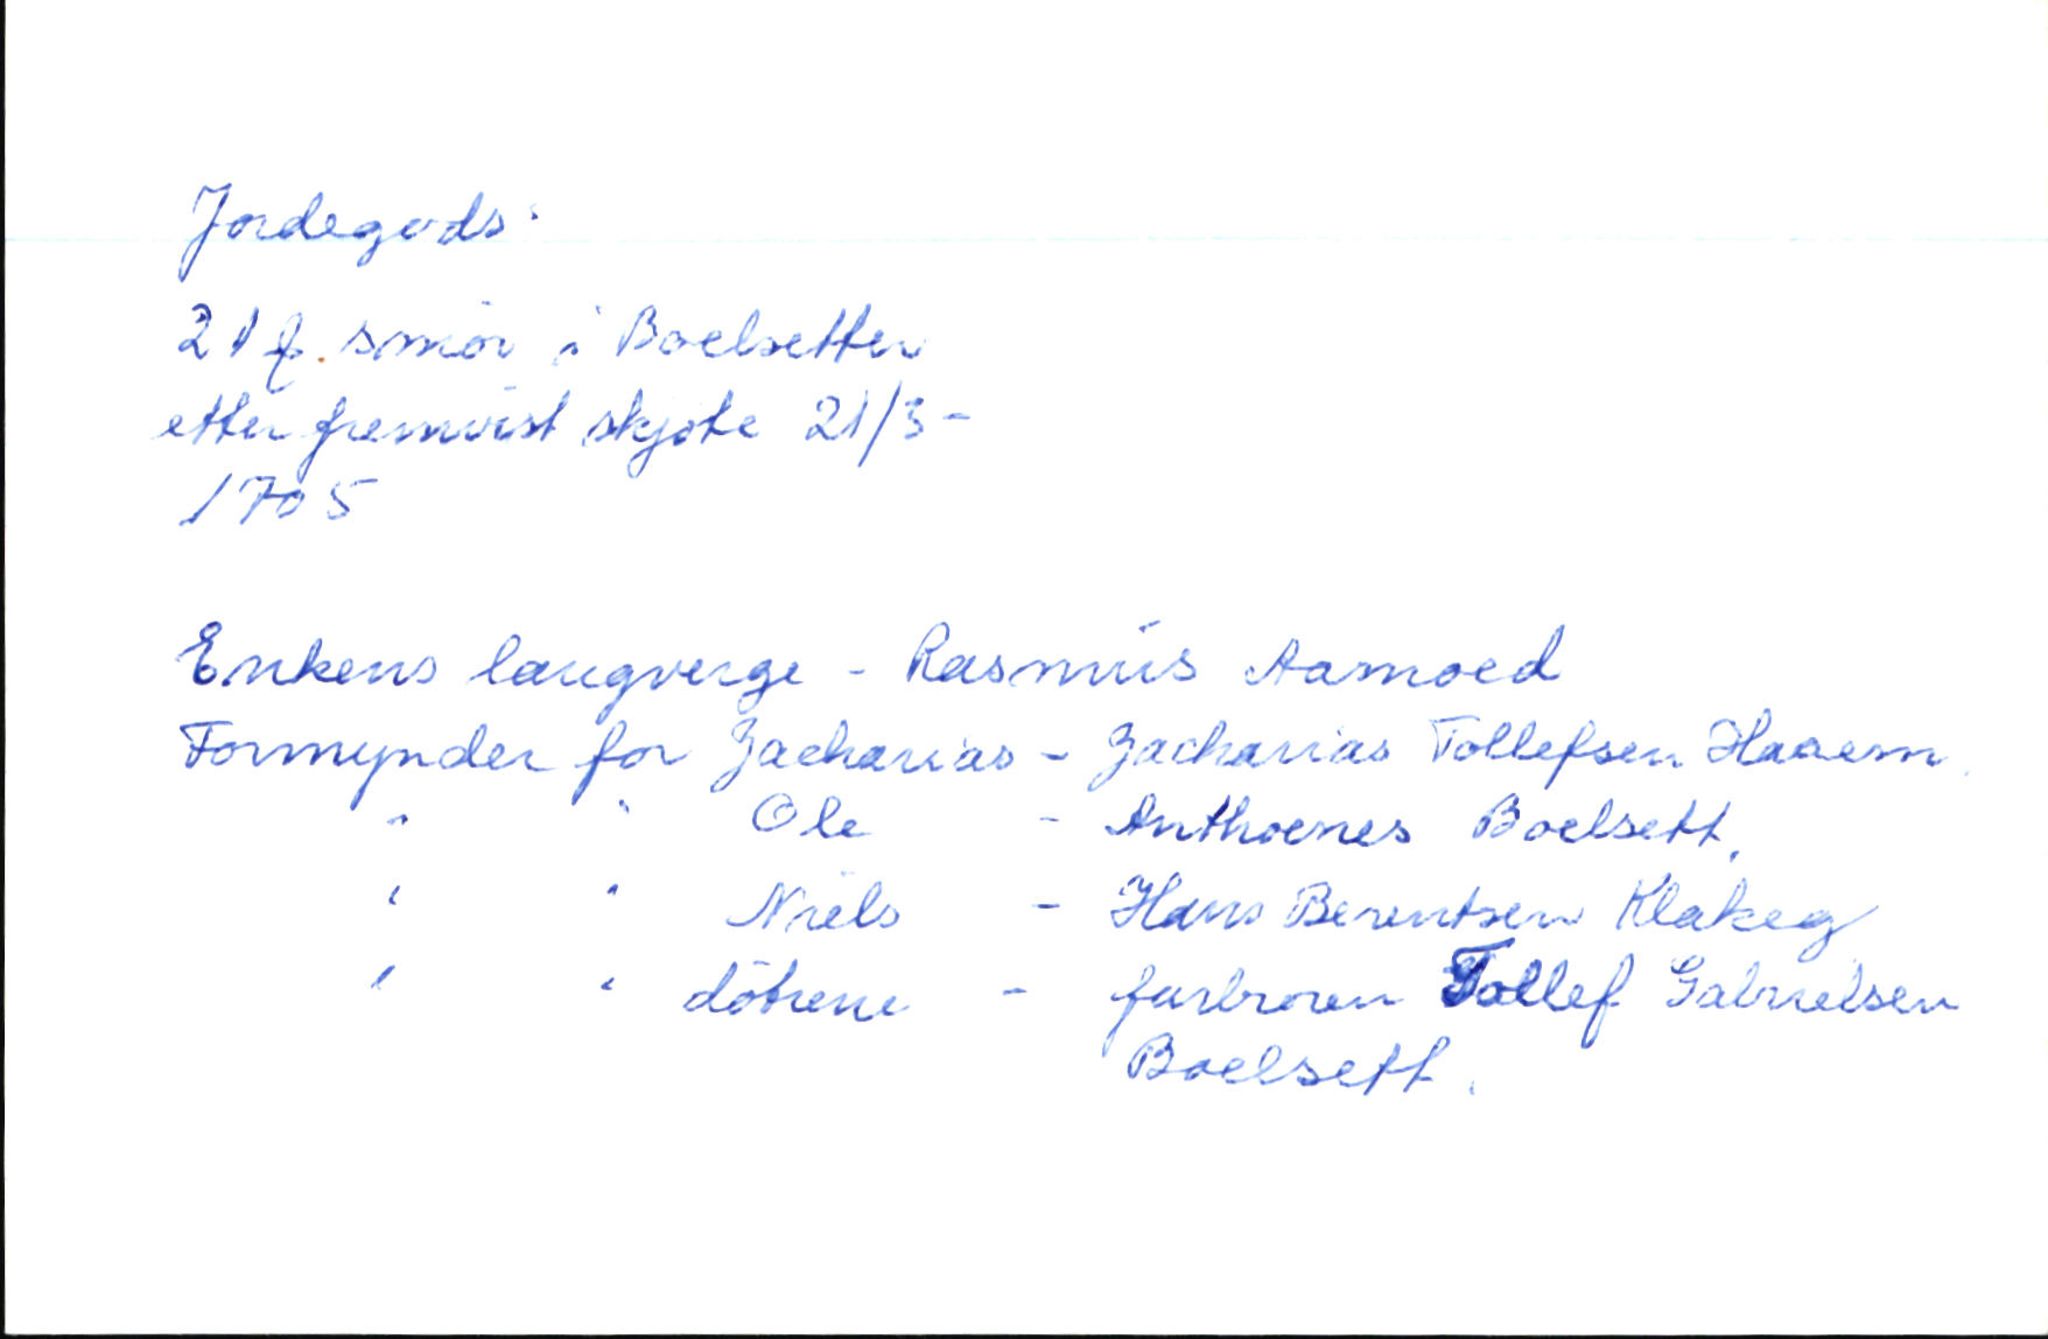 Jordegods:
21 ƒ. smör i Boelsetter
etter fremvist skjöte 21/3-
1705
Enkens laugverge - Rasmus Aamoed
Formynder for Zacharias - Zacharias Tollefsen Haaem.
" " Ole - Anthoenes Boelsett.
" " Niels - Hans Berentsen Klakeg
" " dötrene - farbroren Tollef Gabrielsen
Boelsett.